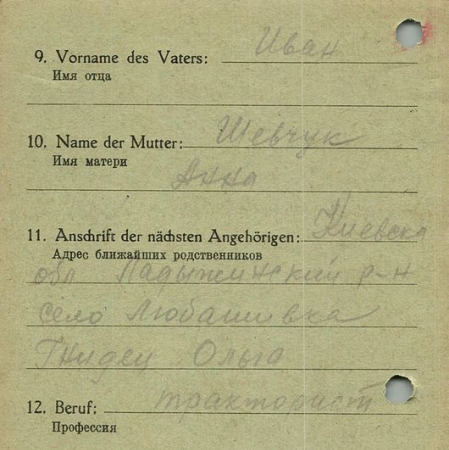 9. Vorname des Vaters: Иван
Имя отца
10. Name der Mutter: Шевчук
Имя матери
Анна
11. Anschrift der nächsten Angehörigen: Киевска
Адрес ближайших родственников
обл Ладыжинский р-н
село Любашивка
Гнидец Ольга
12. Beruf: тракторист
Профессия